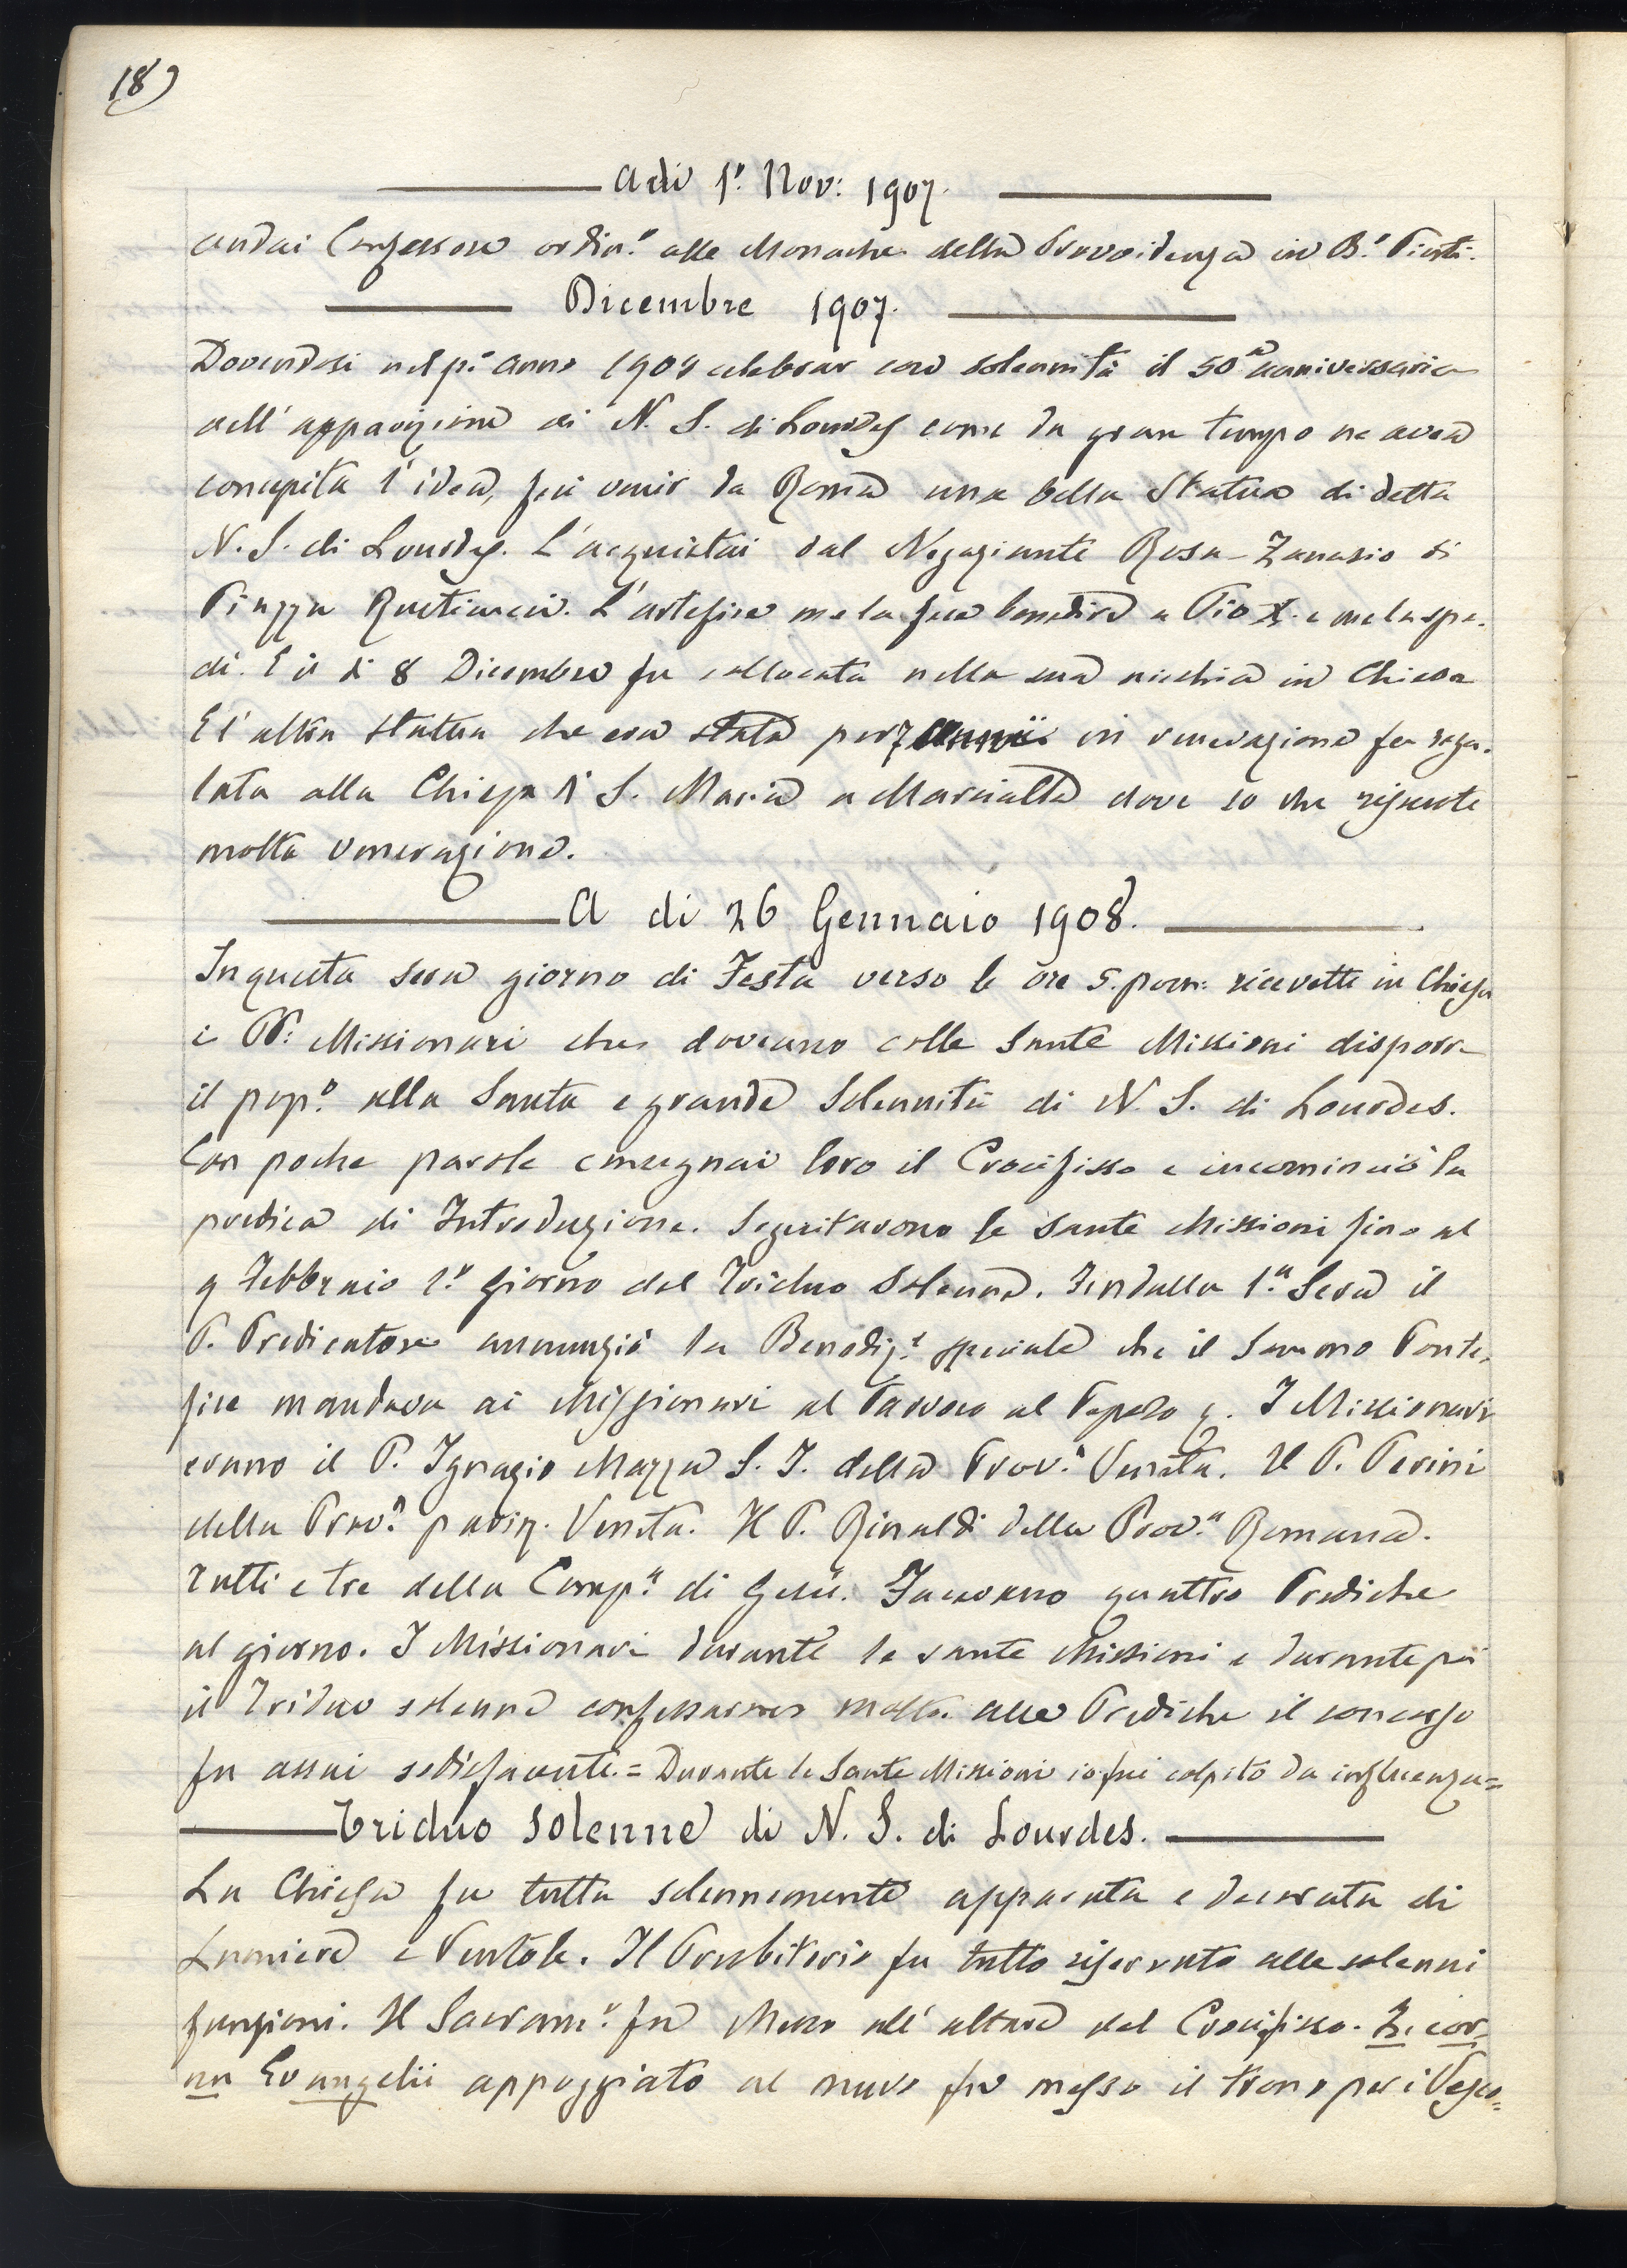 18)
Adi 1º Nov: 1907.
andai Confessore ordin.º alle Monache della Provvidenza in B.º Pinti.
Dicembre 1907.
Dovendosi nel p.º anno 1908 celebrar con solennità il 50º anniversario
dell'apparizione di N. S. di Lourdes come da gran tempo ne avea
concepita l'idea, feci venir da Roma una bella Statua di detta
N. S. di Lourdes. L'acquistai dal Negoziante Rosa-Zanasio di
Piazza Rusticucci. L'artefice me la fece benedire a Pio X. e me la spe-
dì. E il dì 8 Dicembre fu collocata nella sua nicchia in Chiesa
E l'altra statua che era stata per 7 anni in venerazione fu rega-
lata alla Chiesa di S. Maria a Marcialla dove so che riscuote
molta venerazione.
A di 26 Gennaio 1908.
In questa sera giorno di Festa verso le ore 5. pom: ricevetti in Chiesa
i PP: Missionari che doveano colle Sante Missioni disporre
il pop.º alla Santa e grande Solennità di N. S. di Lourdes.
Con poche parole consegnai loro il Crocifisso e incominciò la
predica di Introduzione. Seguitarono le Sante Missioni fino al
9 Febbraio 1.º giorno del Triduo Solenne. Fin dalla 1.ª Sera il
P. Predicatore annunziò la Benediz.e speciale che il Sommo Ponte-
fice mandava ai Missionari al Parroco al Popolo . I Missionari
erano il P. Ignazio Mazza S. J. della Prov.ª Veneta. Il P. Perini
della Prov.ª Veneta. Il P. Rinaldi della Prov.ª Romana.
Tutti e tre della Comp.ª di Gesù. Facevano quattro Prediche
al giorno. I Missionari durante le sante Missioni e durante poi
il Triduo solenne confessarono molto. Alle Prediche il concorso
fu assai sodisfacente. = Durante le Sante Missioni io fui colpito da influenza=
Triduo Solenne di N. S. di Lourdes.
La Chiesa fu tutta solennemente apparata e decorata di
Lumiere e Ventole. Il Presbiterio fu tutto riservato alle solenni
funzioni. Il Sacram.º fu Messo all'altare del Crocifisso. In cor-
nu Evangelii appoggiato al muro fu messo il trono per i Vesco=